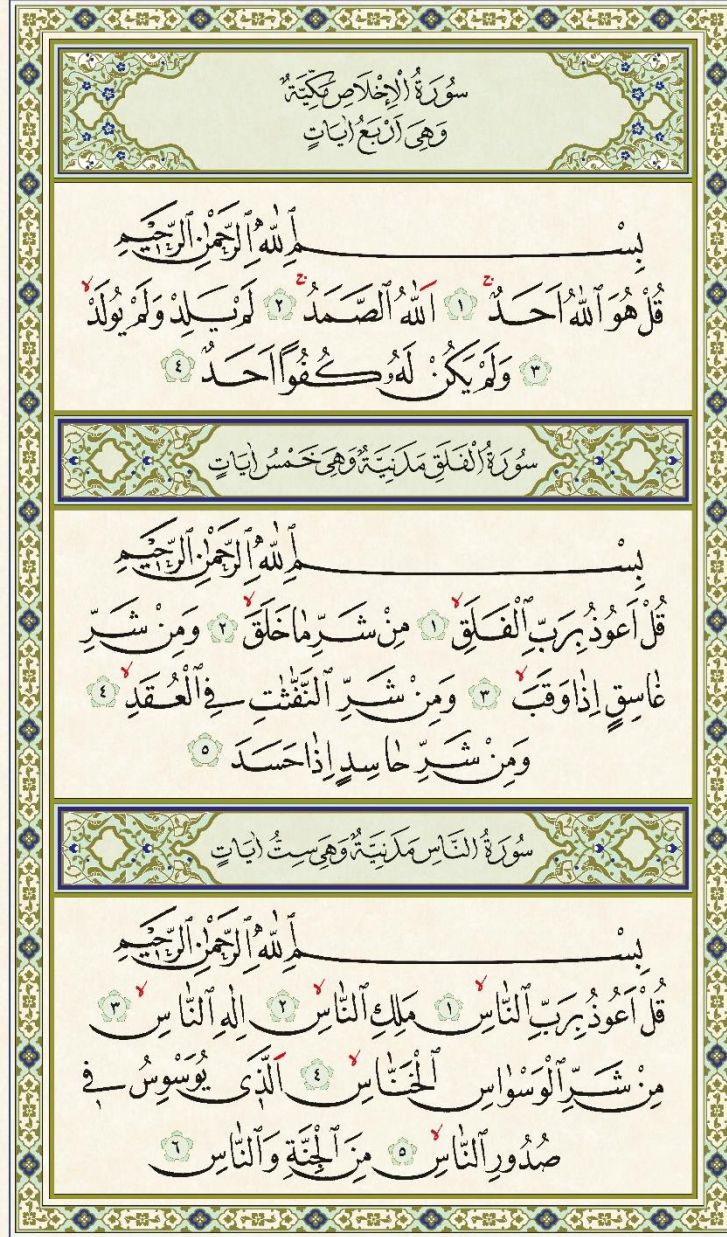 سُورَةُ الْاِخْلَاصِ مَكِّيَّةٌ
وَهِىَ اَرْبَعُ اٰيَاتٍ
بِسْمِ اللّٰهِ الرَّحْمٰنِ الرَّحٖيمِ
قُلْ هُوَ اللّٰهُ اَحَدٌۚ ١ اَللّٰهُ الصَّمَدُۚ ٢ لَمْ يَلِدْ وَلَمْ يُولَدْۙ
٣ وَلَمْ يَكُنْ لَهُ كُفُوًا اَحَدٌ ٤
سُورَةُ الْفَلَقِ مَدَنِيَّةٌ وَهِىَ خَمْسُ اٰيَاتٍ
بِسْمِ اللّٰهِ الرَّحْمٰنِ الرَّحٖيمِ
قُلْ اَعُوذُ بِرَبِّ الْفَلَقِۙ ١ مِنْ شَرِّ مَا خَلَقَۙ ٢ وَمِنْ شَرِّ
غَاسِقٍ اِذَا وَقَبَۙ ٣ وَمِنْ شَرِّ النَّفَّاثَاتِ فِى الْعُقَدِۙ ٤
وَمِنْ شَرِّ حَاسِدٍ اِذَا حَسَدَ ٥
سُورَةُ النَّاسِ مَدَنِيَّةٌ وَهِىَ سِتُّ اٰيَاتٍ
بِسْمِ اللّٰهِ الرَّحْمٰنِ الرَّحٖيمِ
قُلْ اَعُوذُ بِرَبِّ النَّاسِۙ ١ مَلِكِ النَّاسِۙ ٢ اِلٰهِ النَّاسِۙ ٣
مِنْ شَرِّ الْوَسْوَاسِ الْخَنَّاسِۙ ٤ اَلَّذٖى يُوَسْوِسُ فٖى
صُدُورِ النَّاسِۙ ٥ مِنَ الْجِنَّةِ وَالنَّاسِ ٦